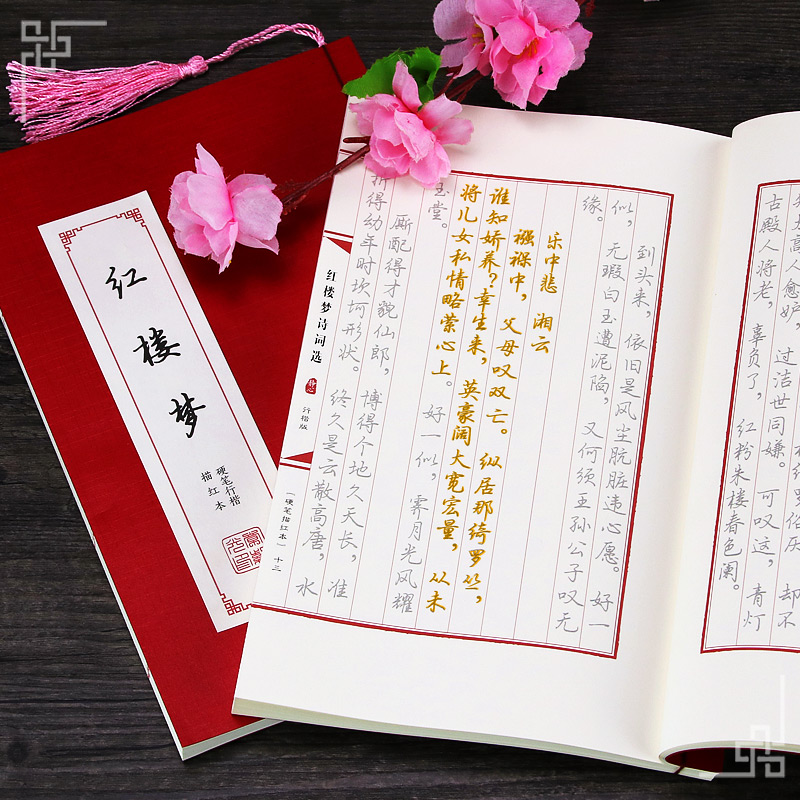 红楼梦
硬笔行楷
描红本
却不
太高人愈妒，过洁世同嫌。可叹这，青灯
古殿人将老，辜负了，红粉朱楼春色阑。
到头来，依旧是风尘肮脏违心愿。好一
似，无瑕白玉遭泥陷，又何须王孙公子叹无
缘。
乐中悲 湘云
襁褓中，父母叹双亡。纵居那绮罗丛，
谁知娇养？幸生来，英豪阔大宽宏量，从未
将儿女私情略萦心上。好一似，霁月光风耀
玉堂。
厮配得才貌仙郎，博得个地久天长，准
折得幼年时坎坷形状。终久是云散高唐，水
红楼梦诗词选 静心 行楷版 （硬笔描红本）十三